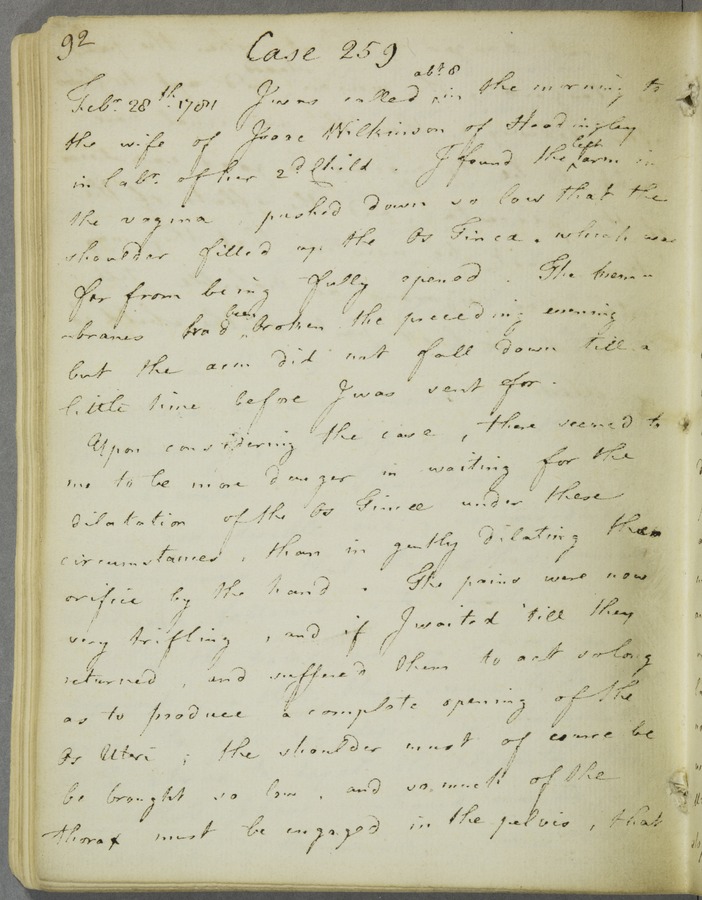 92
Case 259
abt 8
Febr. 28th. 1781 I was called in the morning to
the wife of Isaac Wilkinson of Headingley
left
in labr. of her 2d Child. I found the arm in
the vagina pushed down so low that the
shoulder filled up the Os Tincæ. which was
far from being fully opened. The mem-
been
-branes had broken the preceding evening
but the arm did not fall down till a
little time before I was sent for.
Upon considering the case, there seemed to
me to be more danger in waiting for the
dilatation of the Os Tincæ under these
circumstances, than in gently dilating the
orifice by the hand. The pains were now
very trifling, and if I waited 'till they
returned, and suffered them to act so long
as to produce a complete opening of the
Os Uteri; the shoulder must of course be
be brought so low, and so much of the
thorax must be engaged in the pelvis, that